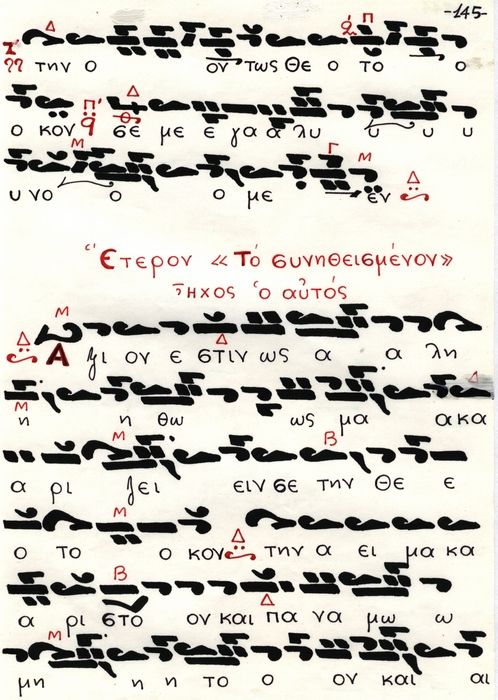 -145-
την ο ον τως Θε ο το ο
ο κον σε με ε γα α λυ υ υ υ
υ νο ο ο με εν
Έτερον «Τό συνηθεισμένον»
Ἦχος ὁ αὐτός
Α ξι ον ε στιν ως α α λη
η η θω ως μα α κα
α ρι ζει ειν σε την Θε ε
ο το ο κον την α ει μα κα
α ρι στο ον και πα να μω ω
μη η η το ο ον και αι